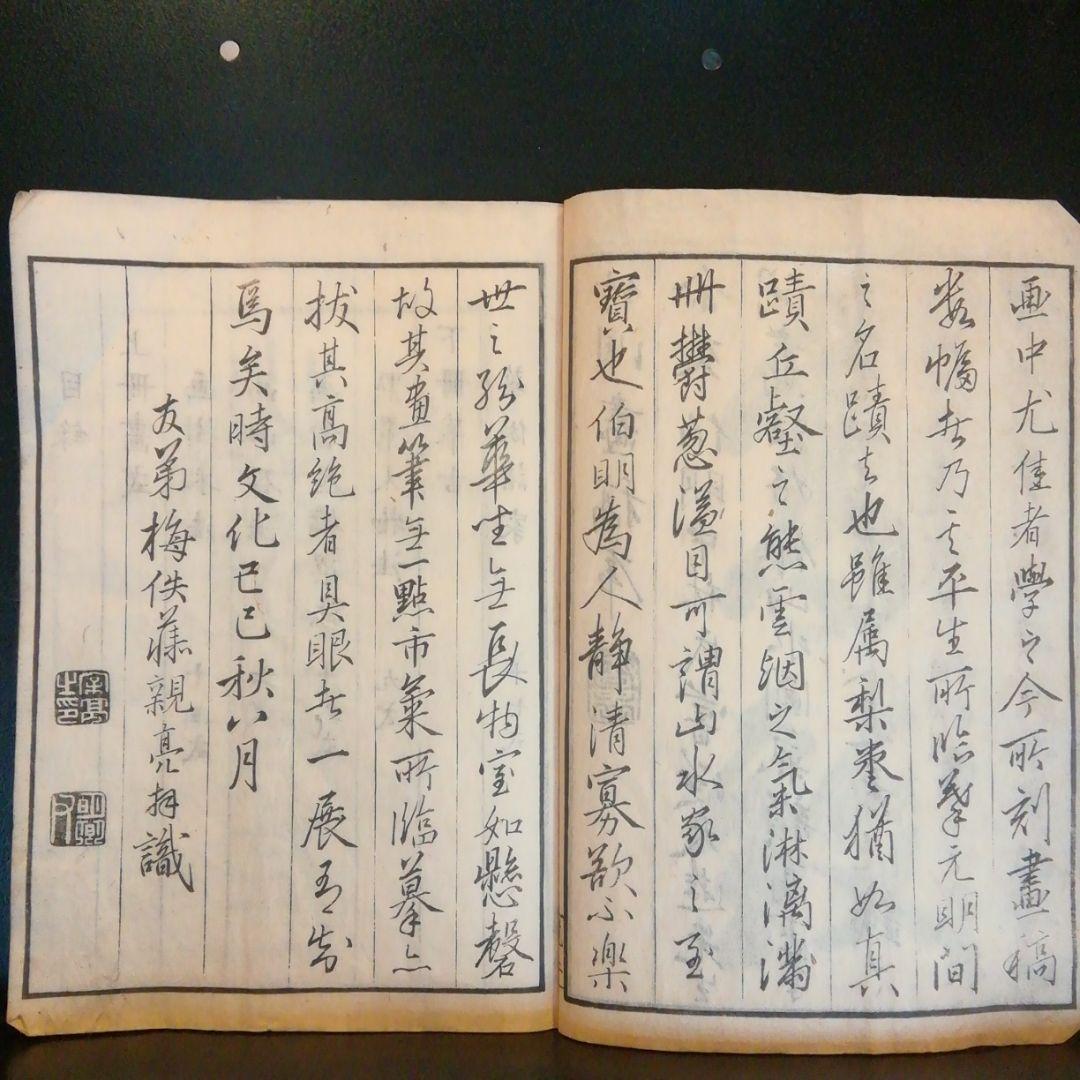 画中尤佳者学之今所刻画稿
数幅者乃其平生所临摹元明间
之名蹟者也雖属梨枣猶如真
蹟丘壑之態雲烟之氣淋漓满
冊欝葱溢目可謂山水家之至
寶也伯明為人静清寡欲不楽
世之紛華坐無長物室如懸磬
故其画筆無一點市氣所临摹亦
抜其高绝者具眼者一展有知
焉矣時文化己巳秋八月
友弟梅佚藤親亮拝識